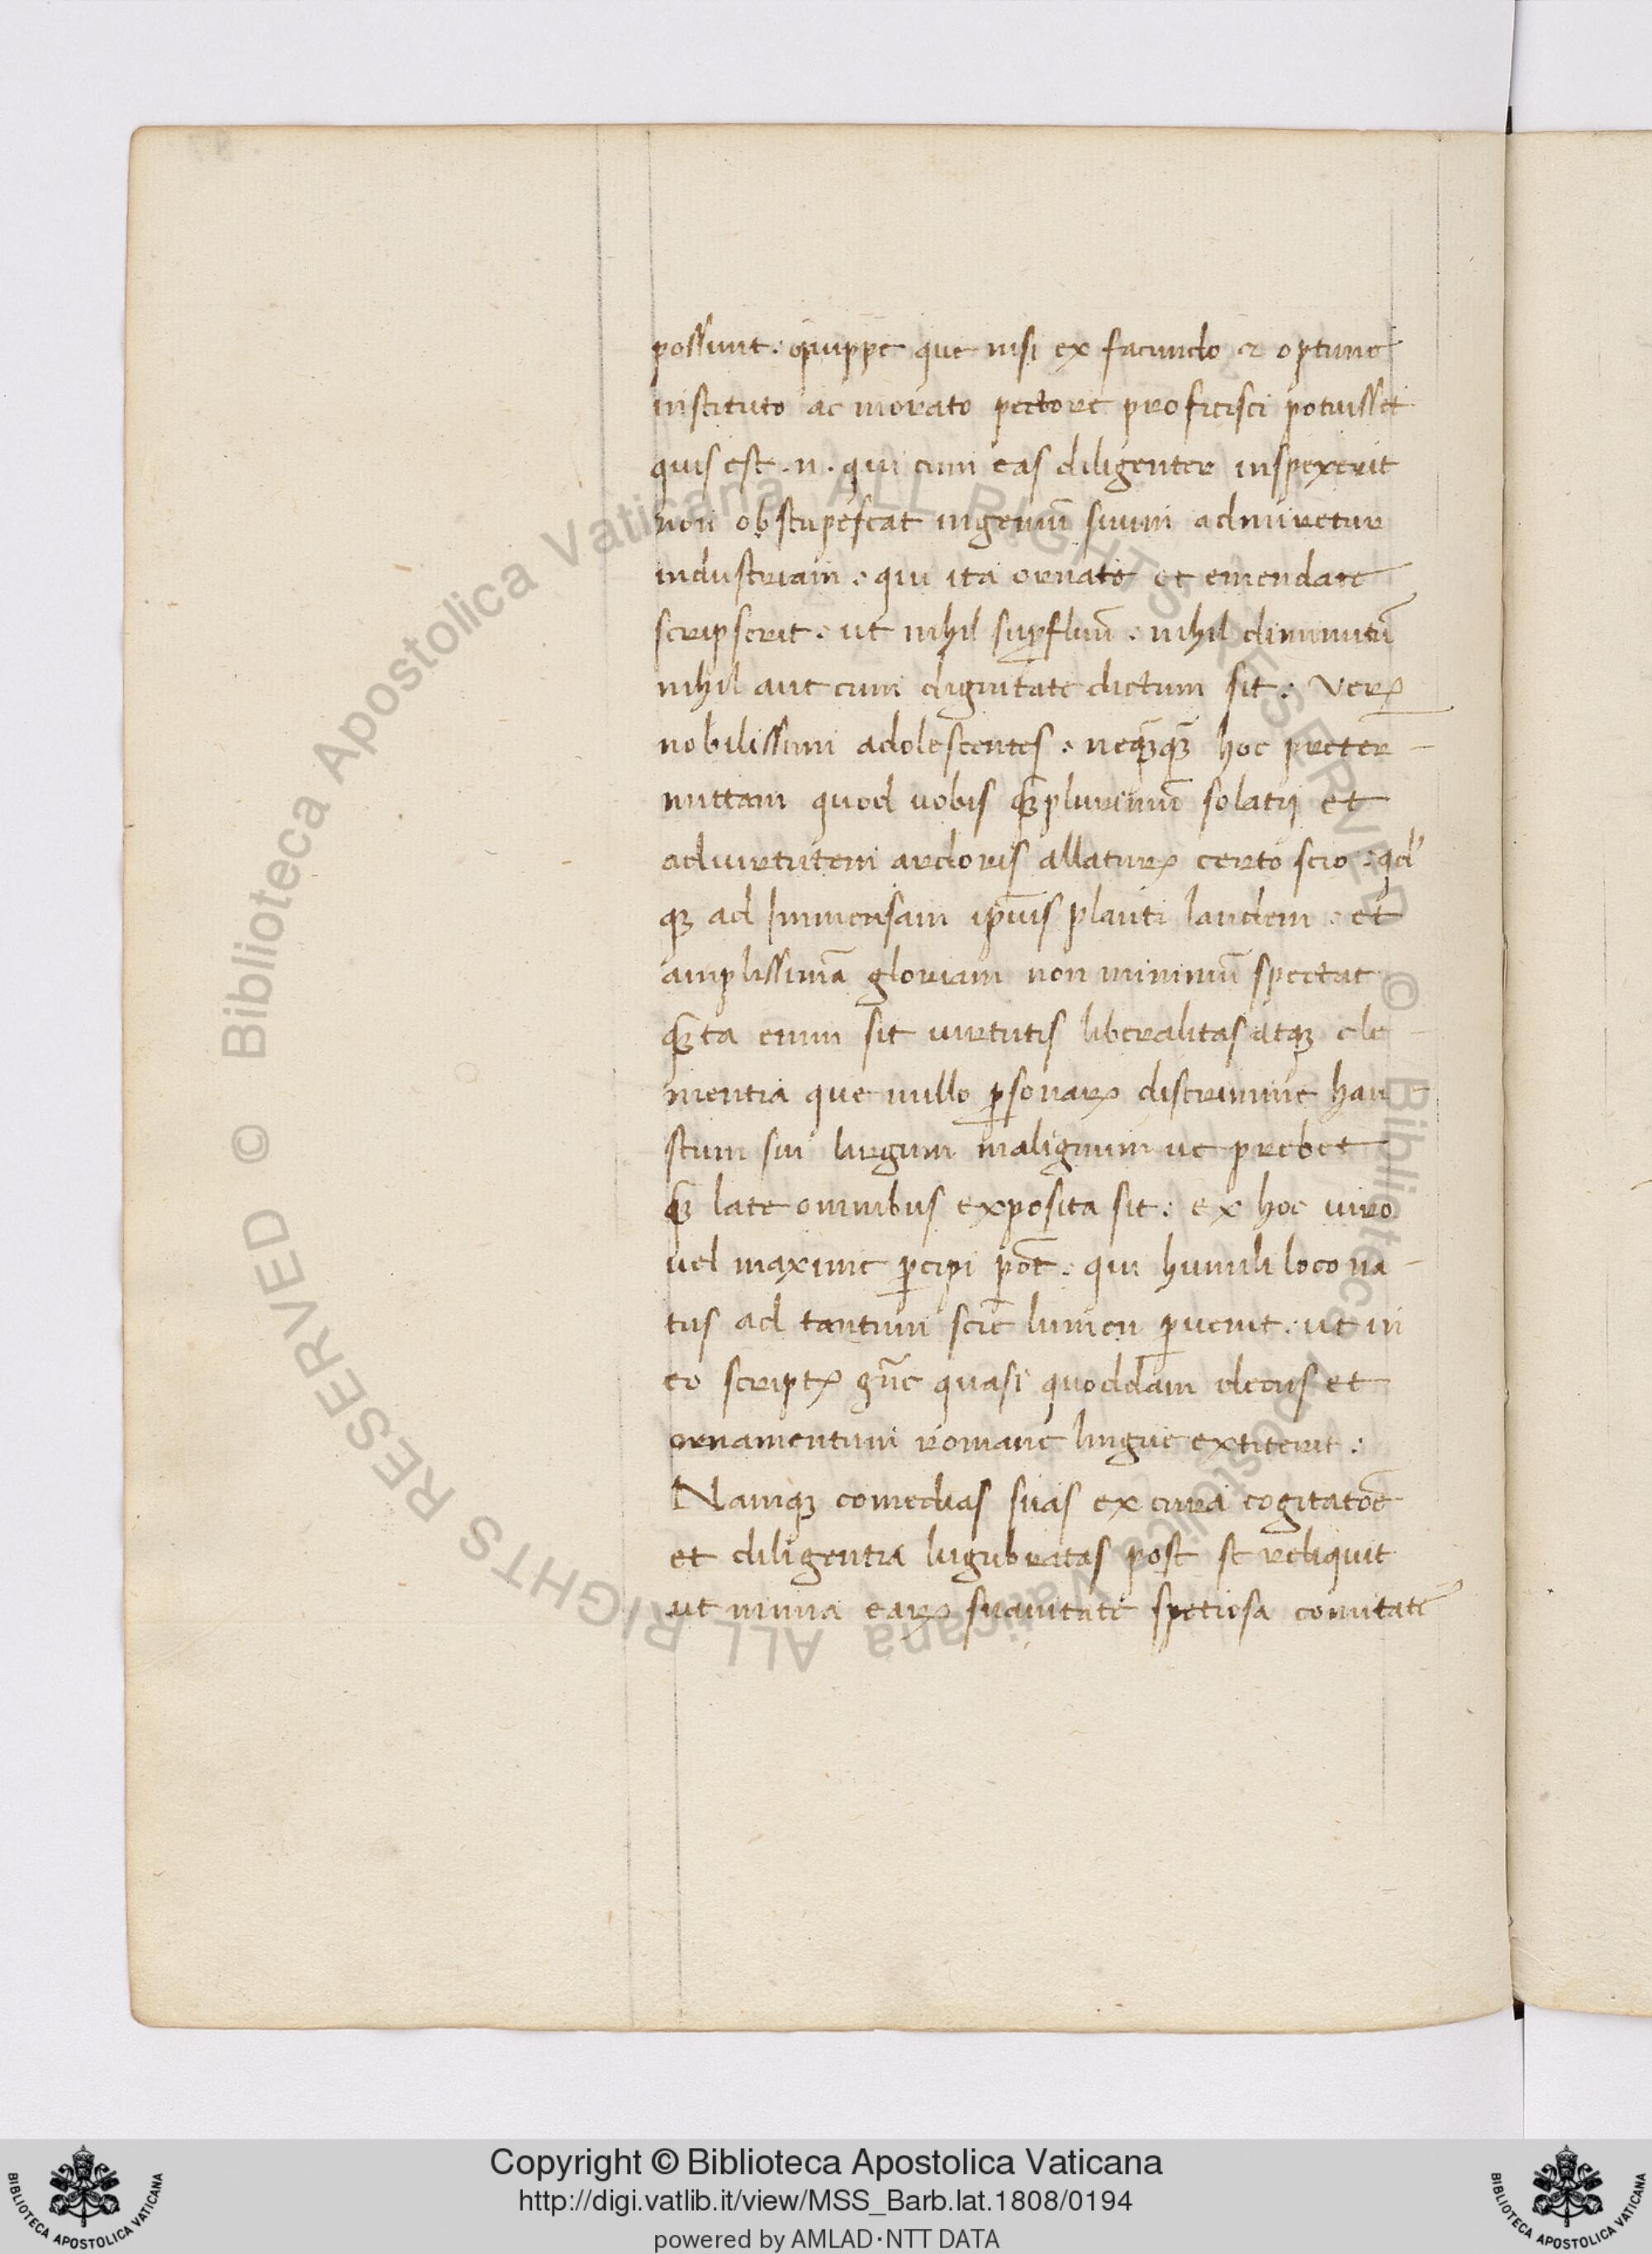 possunt : quippe que nisi ex facundo et optime
instituto ac morato pectore proficisci potuisset
quis est .n. qui cum eas diligenter inspexerit
non obstupescat ingeniū suum admiretur
industriam : qui ita ornate et emendate
scripserit : ut nihil suꝑfluū : nihil diminutū
nihil aut cum dignitate dictum sit : Veꝝ
nobilissimi adolescentes : neqꝫqꝫ̄ hoc preter-
mittam quod uobis qꝫ̄plurimū solatij et
ad uirtutem ardoris allatuꝝ certo scio : qd'
qꝫ ad Immensam ip̄ius plauti laudem : et
amplissimā gloriam non minimū spectat
qꝫ̄ta enim sit uirtutis liberalitas atqꝫ cle-
mentia que nullo ꝑsonaꝝ discrimine hau-
stum sui largum malignum ue prebet
qꝫ̄ late omnibus exposita sit : ex hoc uiro
uel maxime ꝑcipi pōt : qui humili loco na-
tus ad tantum sciē lumen ꝑuenit : ut in
eo scriptꝝ gn̄e quasi quoddam decus et
ornamentum romane lingue extiterit :
Namqꝫ comedias suas ex cura cogitatōe
et diligentia lugubratas post se reliquit
ut nimia eaꝝ suauitate spetiosa comitate
Copyright © Biblioteca Apostolica Vaticana
http://digi.vatlib.it/view/MSS_Barb.lat.1808/0194
powered by AMLAD·NTT DATA
BIBLIOTECA APOSTOLICA VATICANA
BIBLIOTECA APOSTOLICA VATICANA
© Biblioteca Apostolica Vaticana ALL RIGHTS RESERVED
© Biblioteca Apostolica Vaticana ALL RIGHTS RESERVED